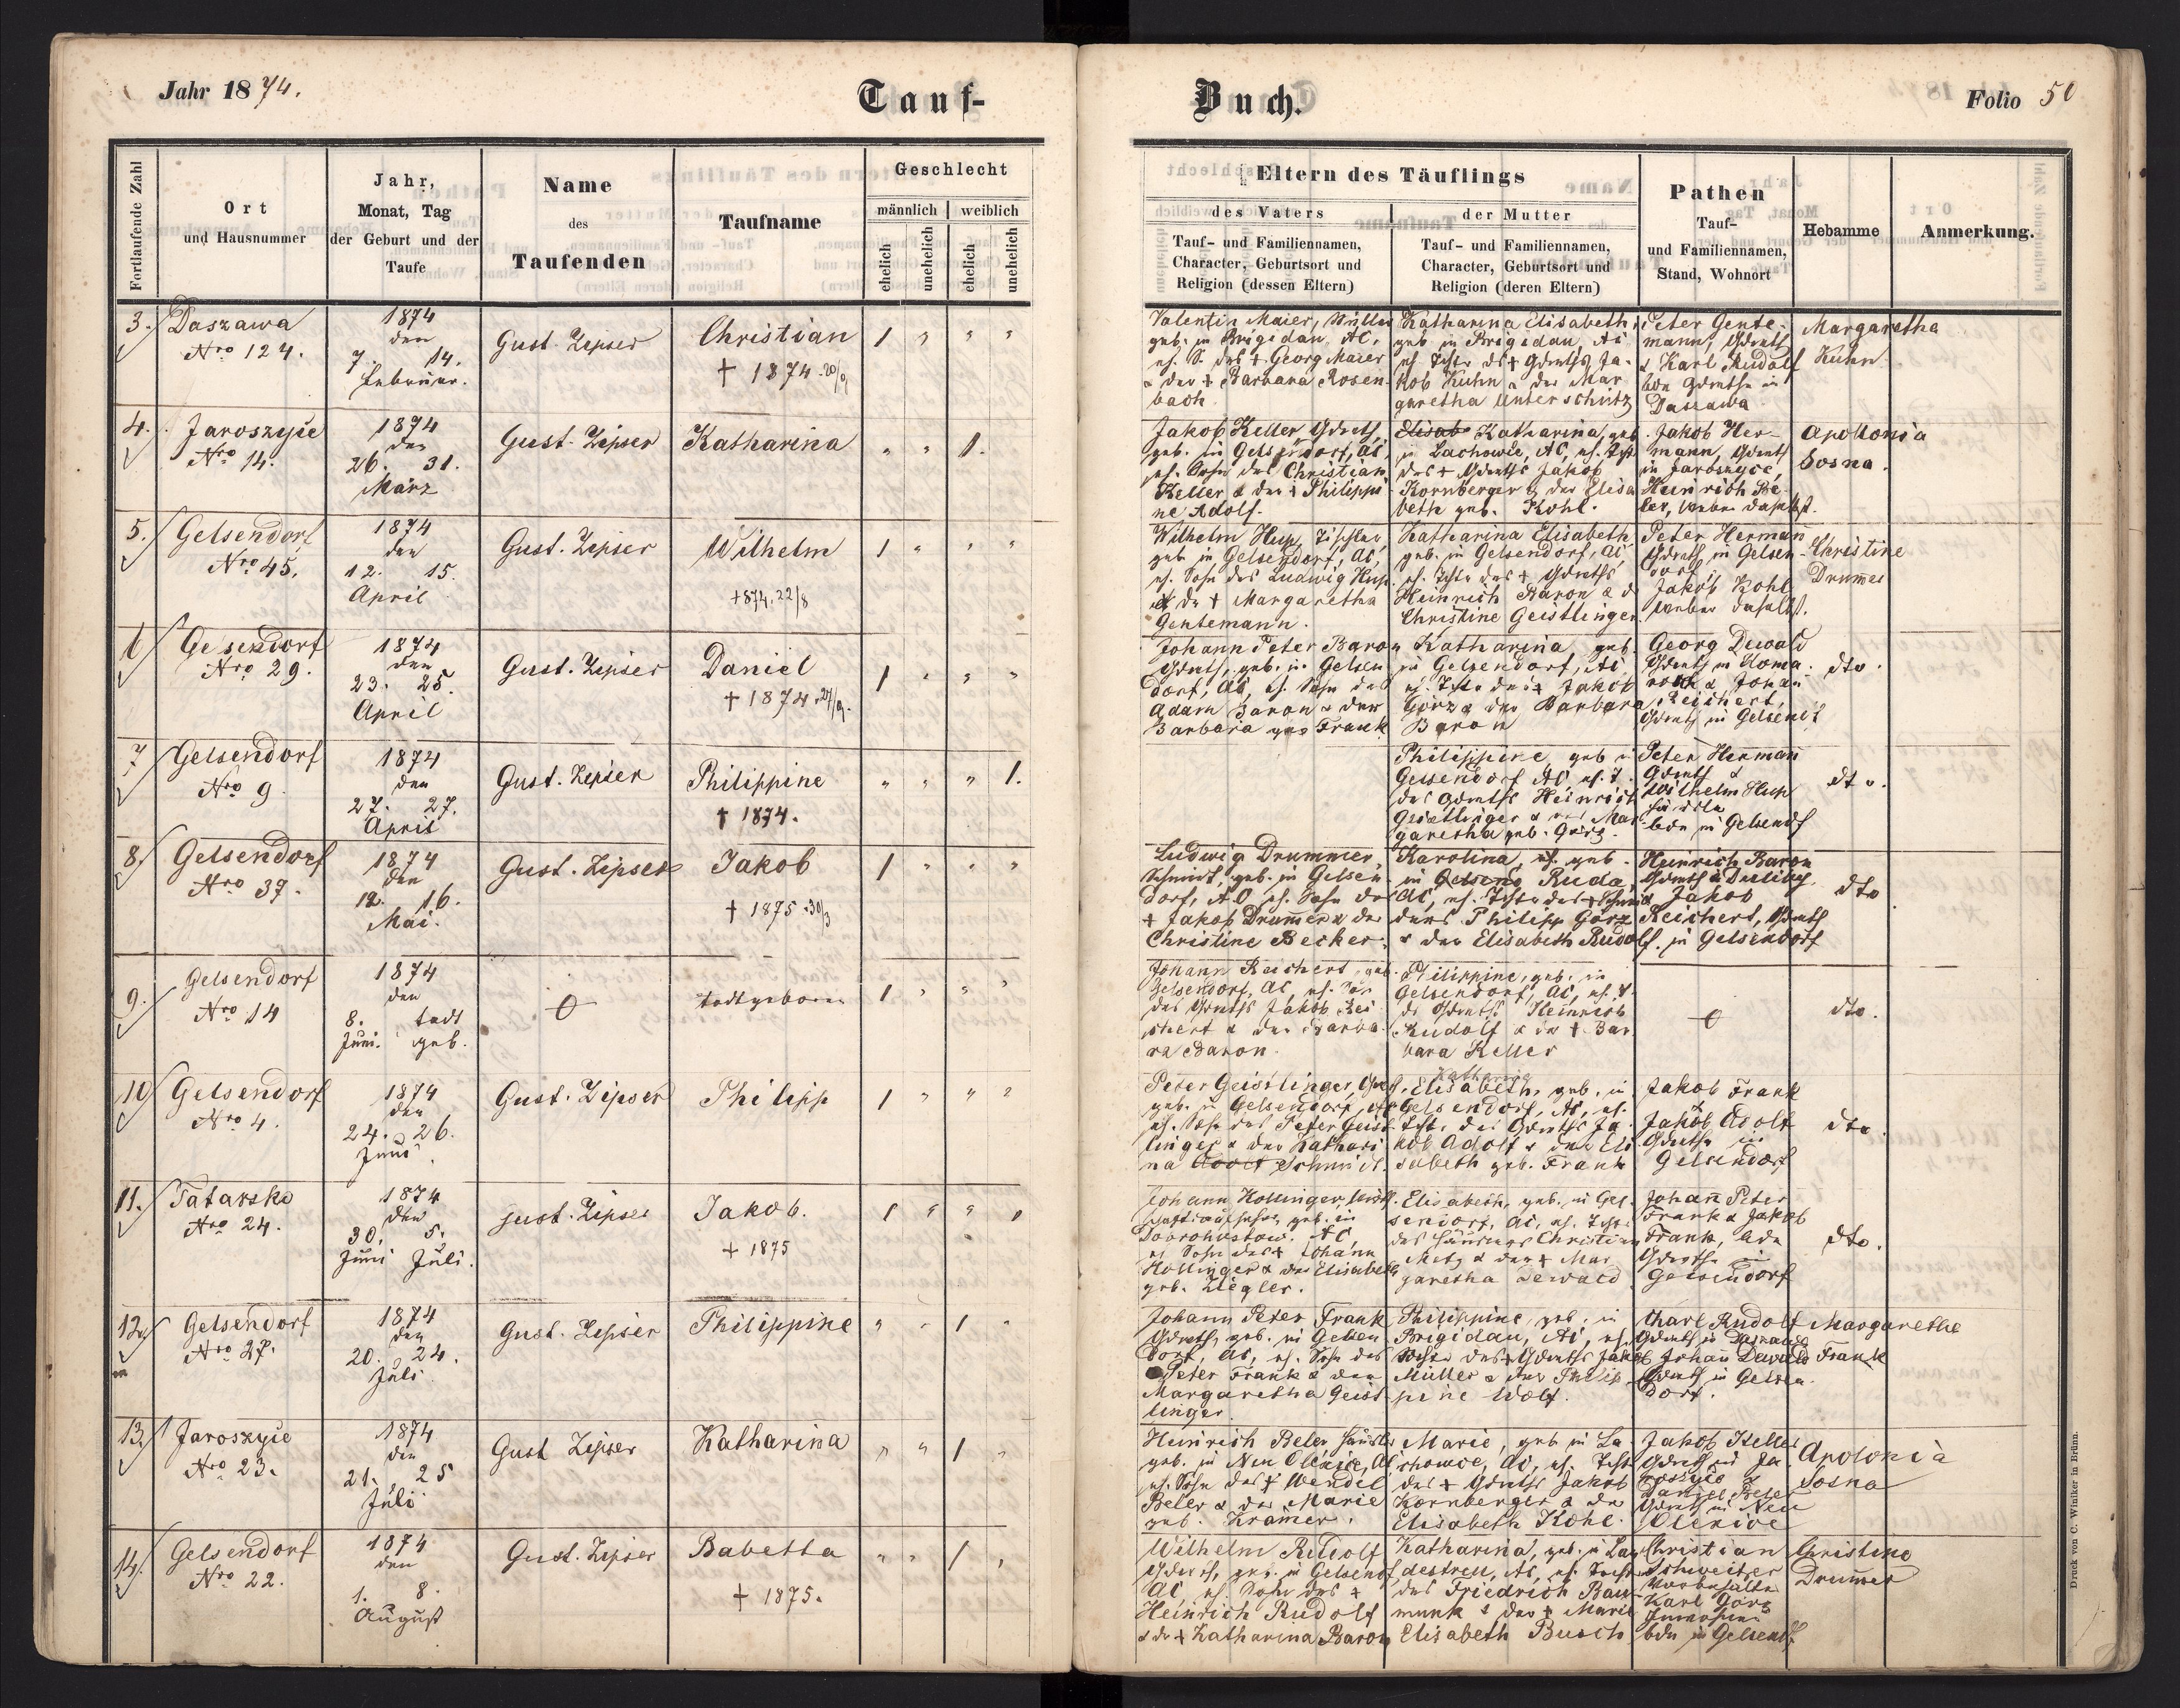 Jahr 1874.
Tauf-
Buch.
Folio 50
Fortlaufende Zahl
Ort
und Hausnummer
Jahr,
Monat, Tag
der Geburt und der
Taufe
Name
des
Taufenden
Taufname
Geschlecht
männlich weiblich
ehelich unehelich ehelich unehelich
Eltern des Täuflings
des Vaters
Tauf- und Familiennamen,
Character, Geburtsort und
Religion (dessen Eltern)
der Mutter
Tauf- und Familiennamen,
Character, Geburtsort und
Religion (deren Eltern)
Pathen
Tauf-
und Familiennamen,
Stand, Wohnort
Hebamme
Anmerkung.
3. Daszawa
Nro 124.
1874
den
7. 14.
Februar.
Gust. Zipser
Christian
+ 1874 20/9
1 " " "
Valentin Maier, Müller
geb. in Brigidau, AC,
eh. S. des + Georg Maier
& der + Barbara Rosen-
bach
Katharina Elisabeth,
geb. in Brigidau, AC
eh. Tocht. d. + Gdrwths Ja-
kob Kuhn & der Mar
garetha Unterschütz
Peter Gente-
mann, Gdrwth
& Karl Rudolf
bde Gdrwthe in
Daszawa
Margaretha
Kuhn
4. Jaroszyce
Nro 14.
1874
den
26. 31.
März
Gust. Zipser
Katharina
" " 1.
Jakob Keller, Gdrwth,
geb. in Gelsendorf, AC,
eh. Sohn des Christian
Keller & der + Philippi-
ne Adolf.
Elisab Katharina, geb
in Lachowce, AC, eh. Tocht
des + Gdrwths Jakob
Kornberger & der Elisa
beth geb. Kohl.
Jakob Her-
mann, Gdrwth
in Jaroszyce,
Heinrich Be-
ler, Weber daselbst.
Apollonia
Sosna.
5. Gelsendorf
Nro 45.
1874
den
12. 15.
April
Gust. Zipser
Wilhelm
+ 874. 22/8
1 " " "
Wilhelm Hup, Tischler,
geb in Gelsendorf, AC,
eh. Sohn des Ludwig Hup
& der + Margaretha
Gentemann.
Katharina Elisabeth
geb. in Gelsendorf, AC
eh. Tochter des + Gdrwths
Heinrich Baron & d
Christine Geistlinger
Peter Herman
Gdrwth in Gelsen-
dorf,
Jakob Kohl
Weber daselbst.
Christine
Drummer
6 Gelsendorf
Nro 29.
1874
den
23. 25.
April
Gust. Zipser
Daniel
+ 1874 27/9.
1 " " "
Johann Peter Baron
Gdrwth, geb. in Gelsen
dorf, AC, eh. Sohn des
Adam Baron & der
Barbara geb Frank
Katharina, geb.
in Gelsendorf, AC
eh. Tochter des + Jakob
Görz & der Barbara
Baron
Georg Dewald
Gdrwth in Koma-
& Johan
Reichert,
Gdrwth in Gelsendf
dto.
7 Gelsendorf
Nro 9.
1874
den
27. 27.
April
Gust. Zipser
Philippine
+ 1874.
" " " 1.
Philippine geb in
Gelsendorf AC eh. T.
des Gdrwths Heinrich
Geistlinger & der Mar
garetha geb. Görz.
Peter Herman
Gdrwth &
Wilhelm Hup
bde in Gelsendf
dto.
8. Gelsendorf
Nro 37.
1874
den
12. 16.
Mai.
Gust. Zipser
Jakob
+ 1875 30/3
1 " " "
Ludwig Drummer,
Schmidt, geb. in Gelsen-
dorf, AC eh. Sohn des
+ Jakob Drummer & der
Christine Becker.
Karolina, eh. geb.
in Gelsend Ruda,
AC, eh. Tochter des + Schnei
ders Philipp Görz
& der Elisabeth Rudolf.
Heinrich Baron
Gdrwth
Jakob
Reichert, Gdrwth
in Gelsendorf
dto
9. Gelsendorf
Nro 14
1874
den
8. todt
Juni. geb.
todtgeboren
1 " " "
Johann Reichert, geb.
Gelsendorf, AC, eh. Sohn
des Gdrwths Jakob Rei
chert & der Barba-
ra Baron.
Philippine, geb. in
Gelsendorf, AC, eh. T.
ds Gdrwths Heinrich
Rudolf & der + Bar
bara Keller
dto.
10 Gelsendorf
Nro 4.
1874
den
24. 26.
Juni.
Gust. Zipser
Philipp
1 " " "
Peter Geistlinger, Gdrwth
geb. in Gelsendorf, AC
eh. Sohn des Peter Geist-
linger & der Kathari
na Adolf Schmidt.
Katharine
Elisabeth, geb. in
Gelsendorf, AC, eh.
Tocht. des Gdrwths Ja-
kob Adolf & der Eli
sabeth geb. Frank
Jakob Frank
&
Jakob Adolf
Gdrwthe in
Gelsendorf
dto.
11. Tatarsko
Nro 24.
1874
den
30. 5.
Juni Juli.
Gust. Zipser
Jakob.
+ 1875
1 " " "
Johann Kollinger, Wirth-
schaftsaufseher, geb. in
Dobrohostow, AC,
eh Sohn des + Johann
Kollinger & der Elisabeth
geb. Ziegler.
Elisabeth, geb. in Gel-
sendorf, AC, eh. Tocht
des Häuslers Christian
Metz & der + Mar
garetha Dewald
Johann Peter
Frank & Jakob
Frank, bde
Gdrwthe in
Gelsendorf
dto.
12. Gelsendorf
Nro 27.
1874
den
20. 24.
Juli
Gust. Zipser
Philippine
" " 1 "
Johann Peter Frank
Gdrwth, geb. in Gelsen
dorf, AC, eh. Sohn des
Peter Frank & der
Margaretha Geist-
linger
Philippine, geb. in
Brigidau, AC, eh.
Tochter des + Gdrwths Jakob
Müller & der Philip-
pine Wolf.
Charl Rudolf
Gdrwth in Daszawa
Johan Dewald
Gdrwth in Gelsen
dorf.
Margarethe
Frank
13. Jaroszyce
Nro 23.
1874
den
21. 25
Juli
Gust Zipser
Katharina
" " 1 "
Heinrich Beler Häusler
geb. in Neu Olexice, AC
eh. Sohn des + Wendel
Beler & der Marie
geb. Kramer.
Marie, geb in La
chowce, AC, eh. Tocht
des + Gdrwths Jakob
Kornberger & der
Elisabeth Kohl.
Jakob Keller
Gdrwth in Ja
roszyce &
Daniel Beler
Gdrwth in Neu
Olexice
Apolonia
Sosna
14. Gelsendorf
Nro 22.
1874
den
1. 8.
August
Gust. Zipser
Babetta
+ 1875.
" " 1 "
Wilhelm Rudolf
Gdrwth, geb. in Gelsendf,
AC, eh. Sohn des +
Heinrich Rudolf
& der + Katharina Baron
Katharina, geb. in Lan
destreu, AC, eh. Tochter
des Friedrich Bau-
munk & der + Marie
Elisabeth Busch
Christian
Schweitzer
Karl Görz
bde in Gelsendf
Christine
Drummer
Druck von C. Winiker in Brünn.